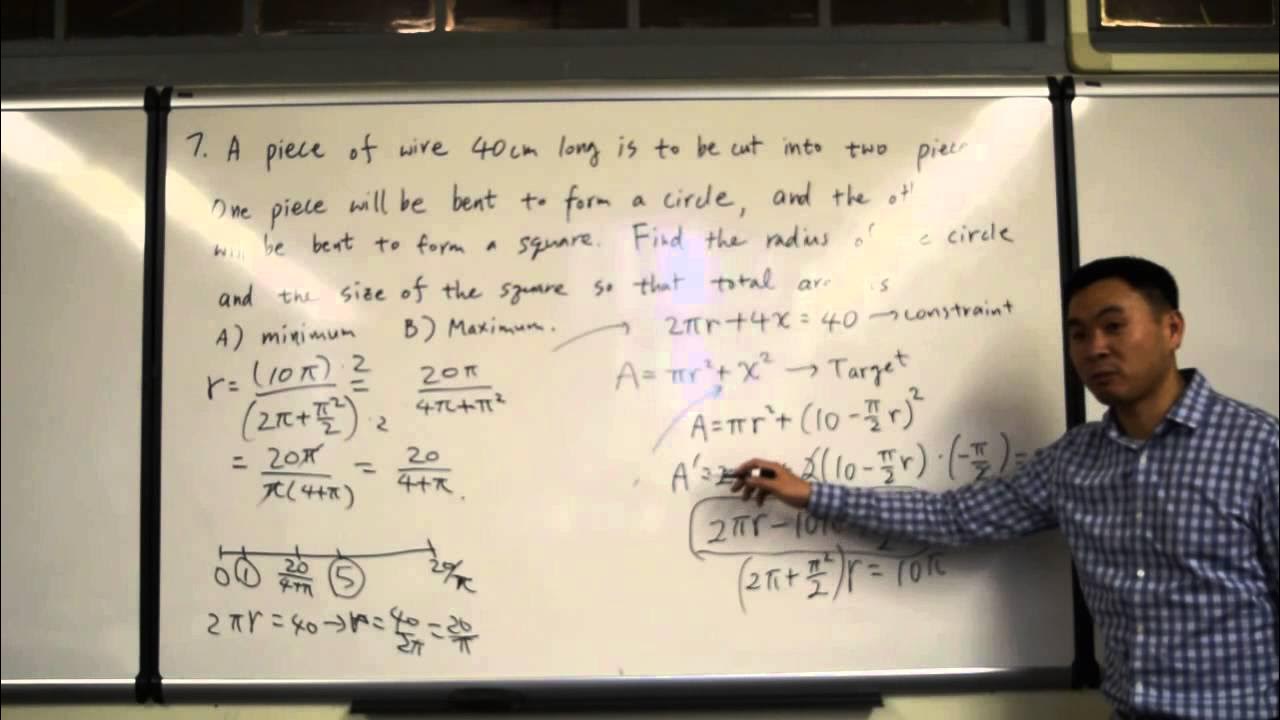 7. A piece of wire 40cm long is to be cut into two
One piece will be bent to form a circle, and the
will be bent to form a square. Find the radius circle
and the size of the square so that total is
A) minimum B) Maximum.
2πr+4x=40 →constraint
A= πr²+x² → Target
A=πr²+(10-π/2 r)²
A'= 2(10-π/2 r)·(-π/2)=
2πr-10π
(2π+π²/2)r=10π
r= (10π)·2/(2π+π²/2)·2 = 20π/4π+π²
= 20π/π(4+π) = 20/4+π.
0 1 20/4+π 5 20/π
2πr=40→r=40/2π=20/π